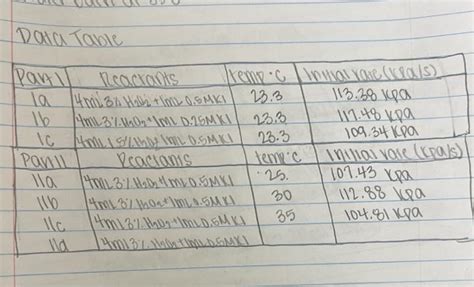 Data Table
Part I Reactants temp °C Initial rate (kPa/s)
1a 4mL 3% H2O2 + 1mL 0.5M KI 23.3 113.38 kpa
1b 4mL 3% H2O2 + 1mL 0.25M KI 23.3 117.48 kpa
1c 4mL 1.5% H2O2 1mL 0.5M KI 23.3 109.34 kpa
Part II Reactants temp °C Initial rate (kpa/s)
11a 4mL 3% H2O2 + 1mL 0.5M KI 25. 107.43 kpa
11b 4mL 3% H2O2 + 1mL 0.5M KI 30 112.88 kpa
11c 4mL 3% H2O2 + 1mL 0.5M KI 35 104.81 kpa
11d 4mL 3% H2O2 + 1mL 0.5M KI